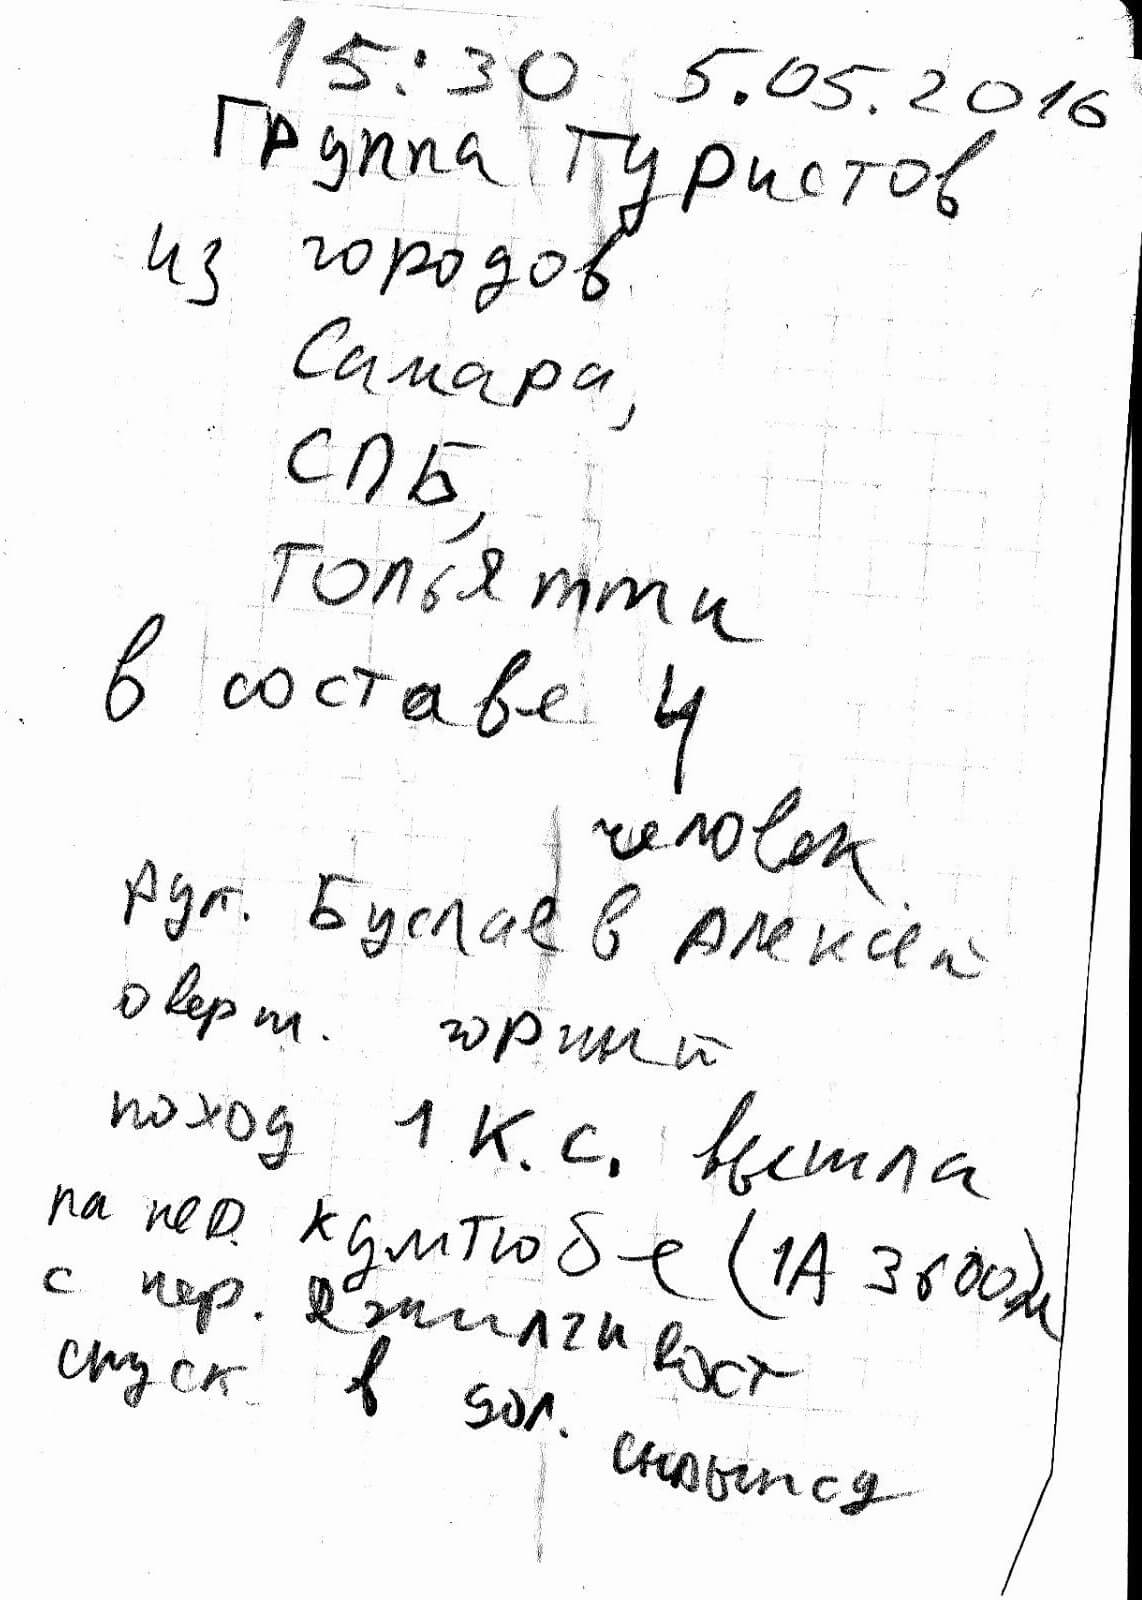 15:30 5.05.2016
Группа туристов
из городов
Самара,
СПБ,
Тольятти
в составе 4
человек.
рук. Буслаев Алексей
соверш. горный
поход 1 к.с. вышла
на пер. Кумтюбе (1А 3600м)
с пер. Джилги вост
спуск в дол.